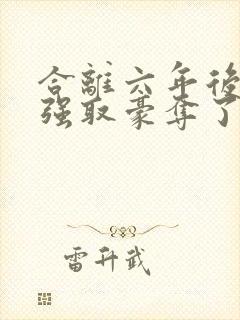 合離六年後
强取豪奪了
雷升武